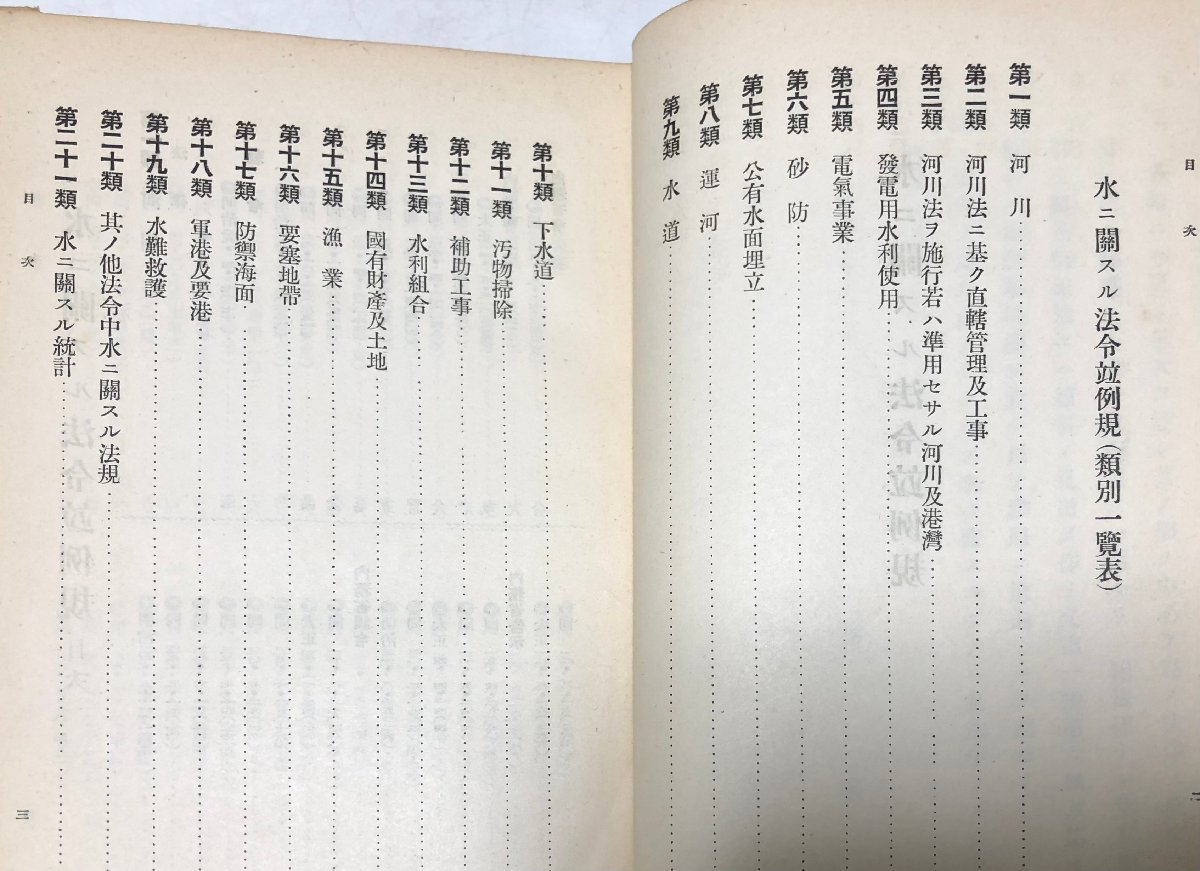 目次
水ニ關スル法令竝例規(類別一覽表)
第一類 河川
第二類 河川法ニ基ク直轄管理及工事
第三類 河川法ヲ施行若ハ準用セサル河川及港灣
第四類 發電用水利使用
第五類 電氣事業
第六類 砂防
第七類 公有水面埋立
第八類 運河
第九類 水道
第十類 下水道
第十一類 汚物掃除
第十二類 補助工事
第十三類 水利組合
第十四類 國有財產及土地
第十五類 漁業
第十六類 要塞地帶
第十七類 防禦海面
第十八類 軍港及要港
第十九類 水難救護
第二十類 其ノ他法令中水ニ關スル法規
第二十一類 水ニ關スル統計
目次
三